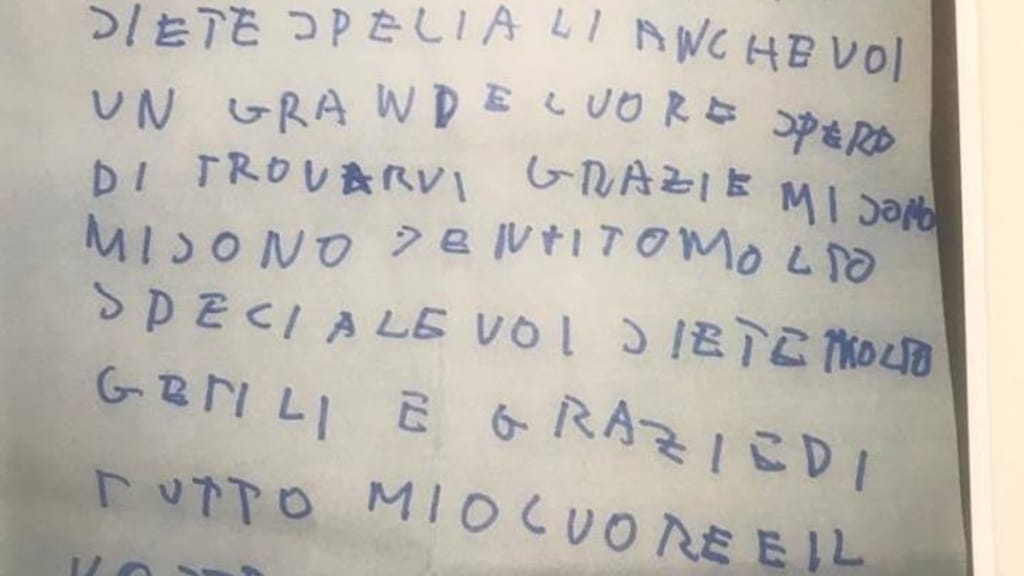 SIETE SPECIALI ANCHE VOI
UN GRANDE CUORE SPERO
DI TROVARVI GRAZIE MI SONO
MI SONO SENTITO MOLTO
SPECIALE VOI SIETE MOLTO
GENTILI E GRAZIE DI
TUTTO MIO CUORE E IL